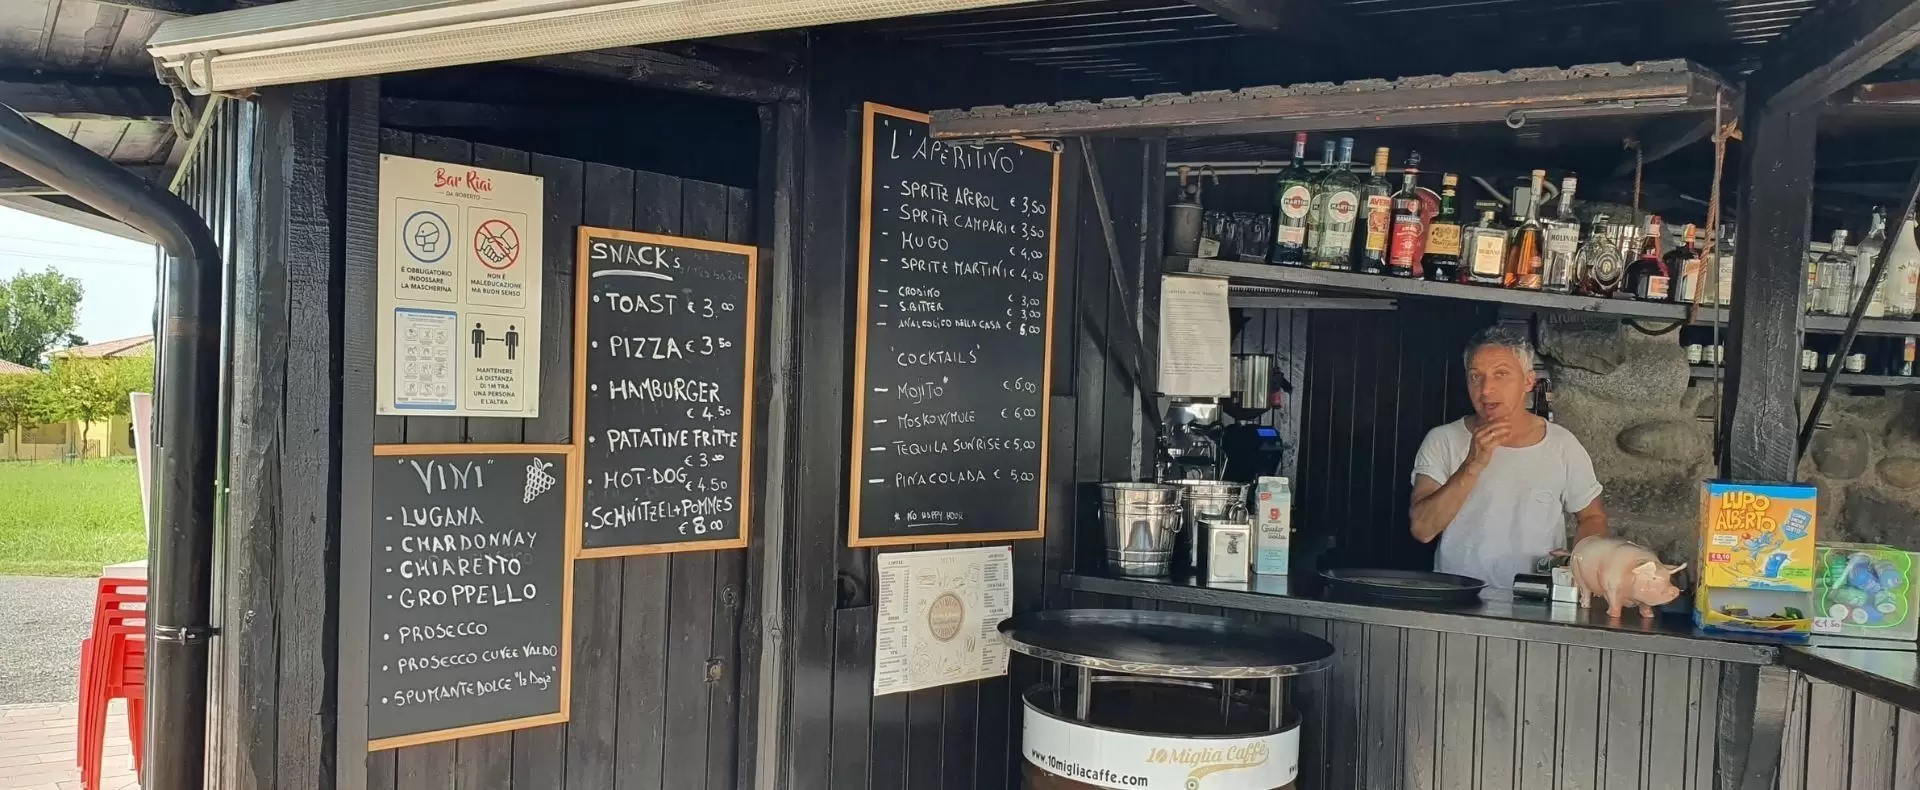 Bar Riai
DA ROBERTO
È OBBLIGATORIO
INDOSSARE
LA MASCHERINA
NON È
MALEDUCAZIONE
MA BUON SENSO
MANTENERE
LA DISTANZA
DI 1M TRA
UNA PERSONA
E L'ALTRA
"VINI"
- LUGANA
- CHARDONNAY
- CHIARETTO
- GROPPELLO
• PROSECCO
• PROSECCO CUVEE VALDO
• SPUMANTE DOLCE "la Doja"
SNACK's
• TOAST € 3.00
• PIZZA € 3 50
• HAMBURGER
€ 4.50
• PATATINE FRITTE
€ 3.00
• HOT-DOG
€ 4.50
• SCHNITZEL+POMMES
€ 8 00
"L'APERITIVO"
- SPRITZ APEROL € 3,50
- SPRITZ CAMPARI € 3,50
- HUGO € 4,00
- SPRITZ MARTINI € 4,00
- CRODINO € 3,00
- S.BITTER € 3,00
- ANALCOLICO DELLA CASA € 5,00
"COCKTAILS"
- MOJITO* € 6,00
- MOSKOW MULE € 6,00
- TEQUILA SUNRISE € 5,00
- PIÑACOLADA € 5,00
* NO HAPPY HOUR
MENU
MARTINI
MARTINI
AVERNA
RAMAZZOTTI
MOLINARI
LUPO
ALBERTO
€ 0,10
€ 1,50
www.10migliacaffe.com
10 Miglia Caffè